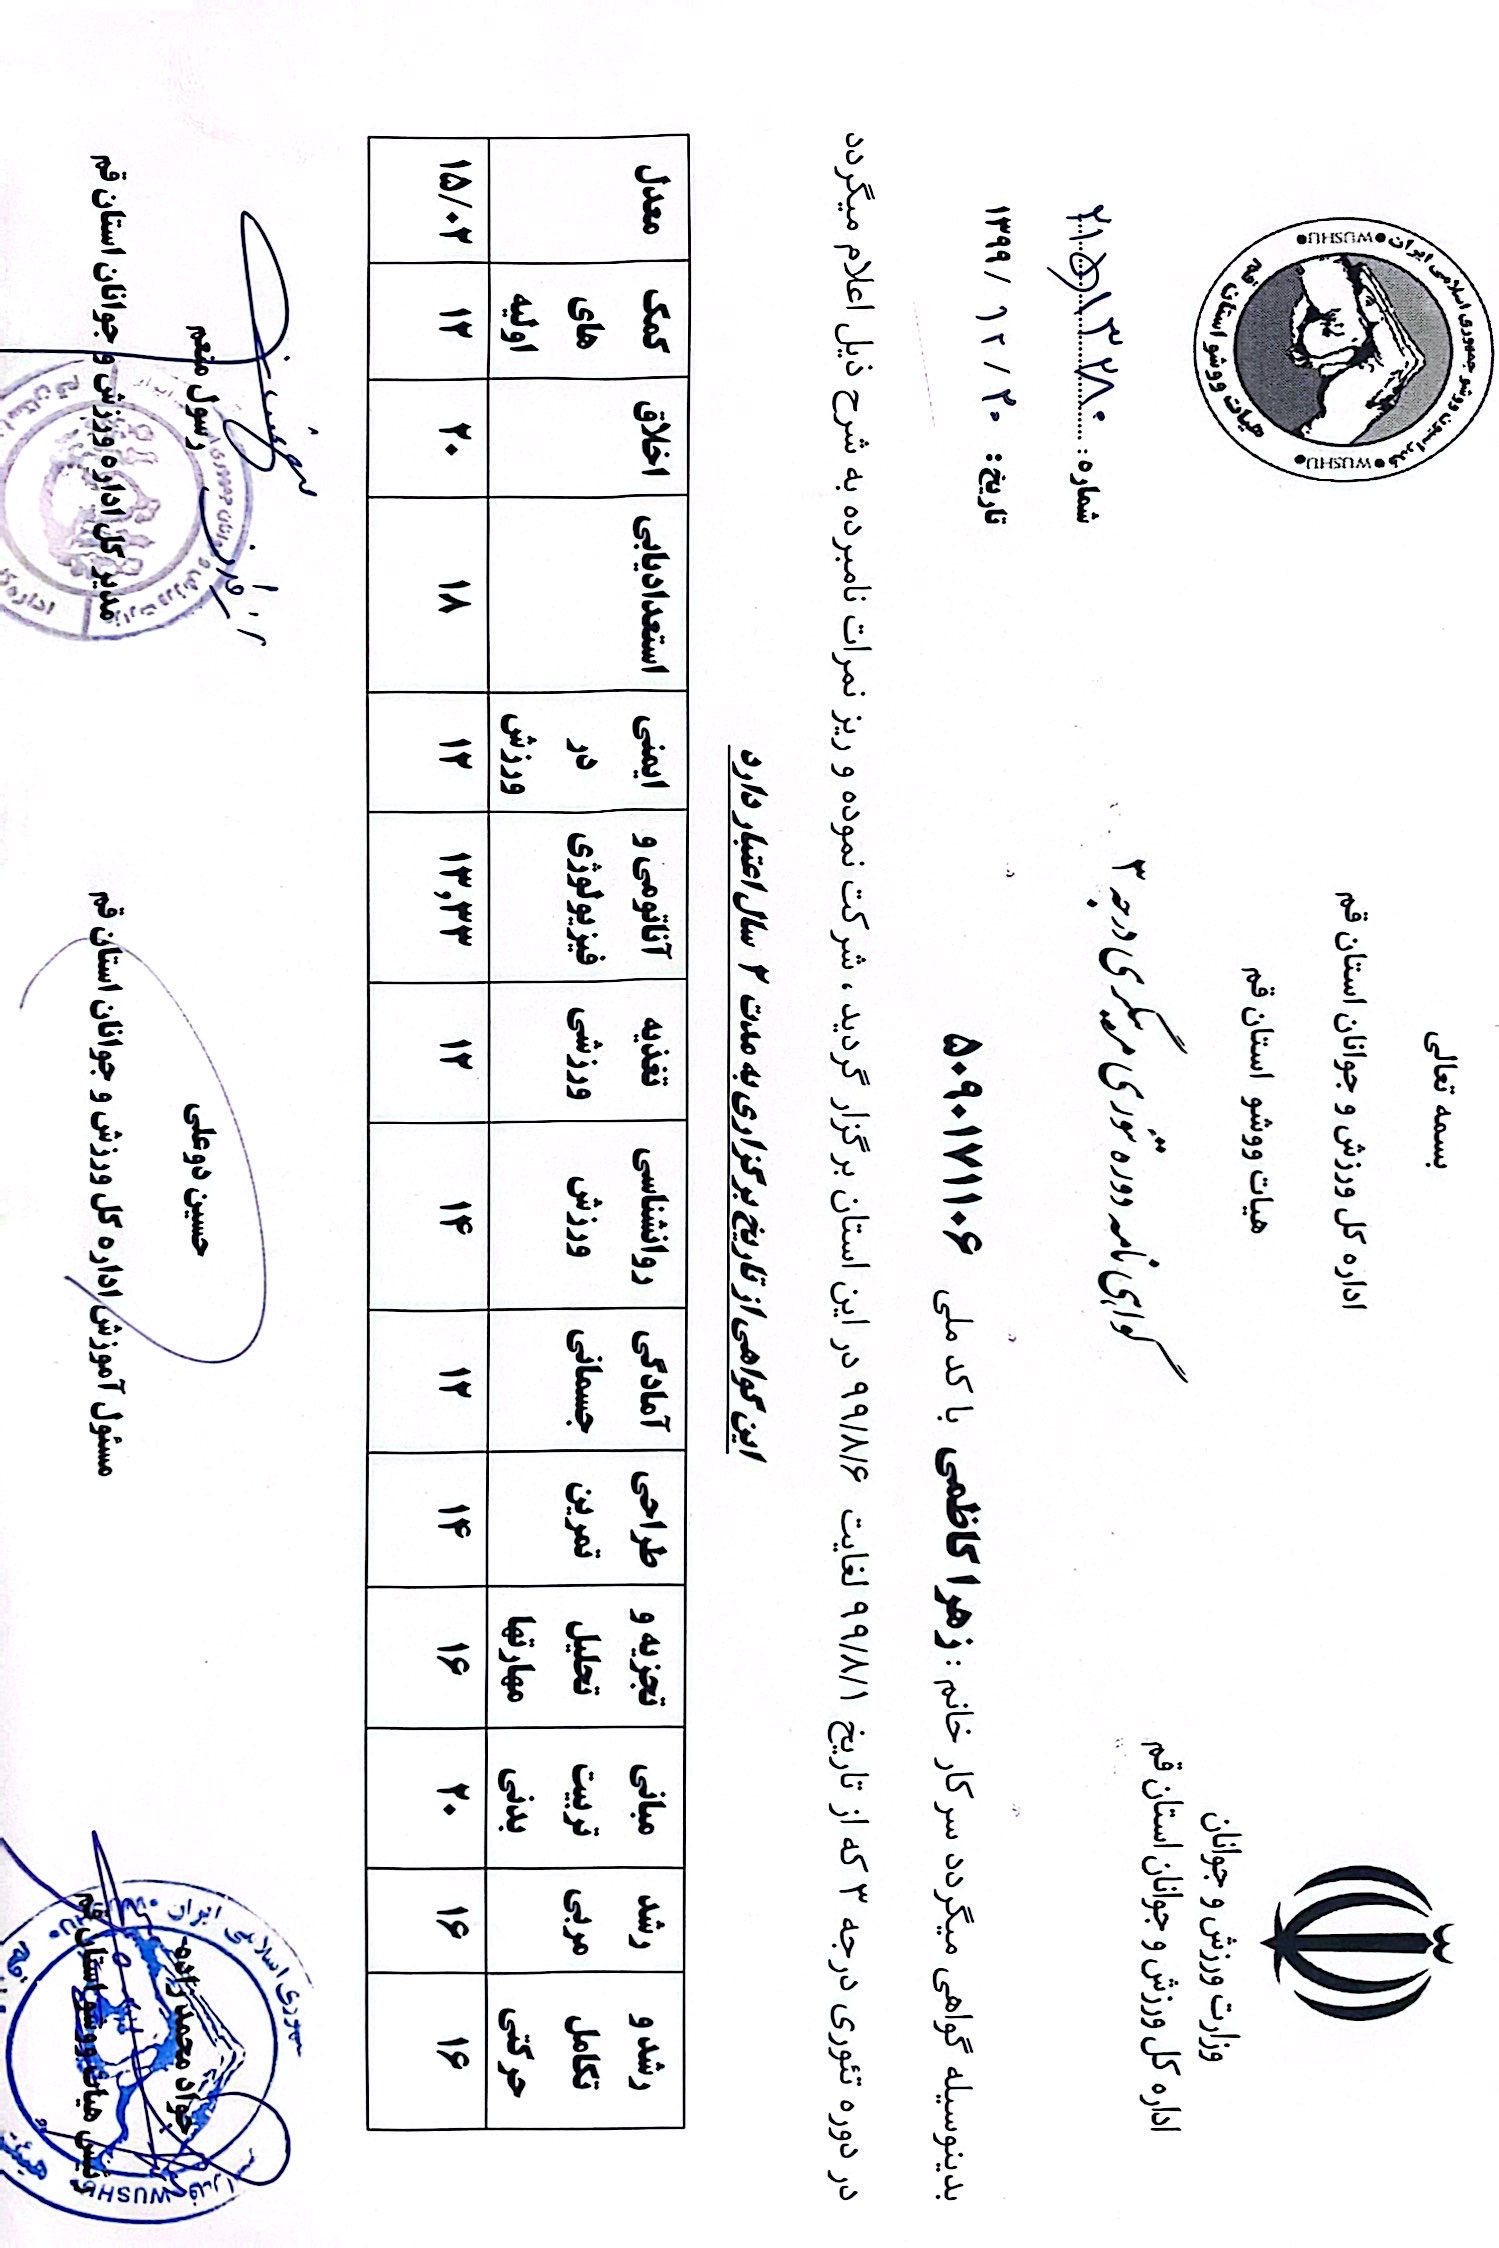 بسمه تعالی
اداره کل ورزش و جوانان استان قم
هیات ووشو استان قم
وزارت ورزش و جوانان
اداره کل ورزش و جوانان استان قم
فدراسیون ووشو جمهوری اسلامی ایران
هیات ووشو استان قم
WUSHU
WUSHU
گواهی نامه دوره تئوری مربیگری درجه ۳
شماره: ۲۱۵/۱۳۲۸۰
تاریخ: ۲۰ / ۱۲ / ۱۳۹۹
بدینوسیله گواهی میگردد سرکار خانم : زهرا کاظمی با کد ملی ۵۰۹۰۱۷۱۱۰۶
در دوره تئوری درجه ۳ که از تاریخ ۹۹/۸/۱ لغایت ۹۹/۸/۶ در این استان برگزار گردید ، شرکت نموده و ریز نمرات نامبرده به شرح ذیل اعلام میگردد
این گواهی از تاریخ برگزاری به مدت ۲ سال اعتبار دارد
رشد و تکامل حرکتی | رشد مربی | مبانی تربیت بدنی | تجزیه و تحلیل مهارتها | طراحی تمرین | آمادگی جسمانی | روانشناسی ورزش | تغذیه ورزشی | آناتومی و فیزیولوژی | ایمنی در ورزش | استعدادیابی | اخلاق | کمک های اولیه | معدل
۱۶ | ۱۶ | ۲۰ | ۱۶ | ۱۴ | ۱۲ | ۱۴ | ۱۲ | ۱۳,۳۳ | ۱۲ | ۱۸ | ۲۰ | ۱۲ | ۱۵/۰۲
جواد محمدزاده
رئیس هیات ووشو استان قم
حسین دوعلی
مسئول آموزش اداره کل ورزش و جوانان استان قم
رسول منعم
مدیر کل اداره ورزش و جوانان استان قم
WUSHU